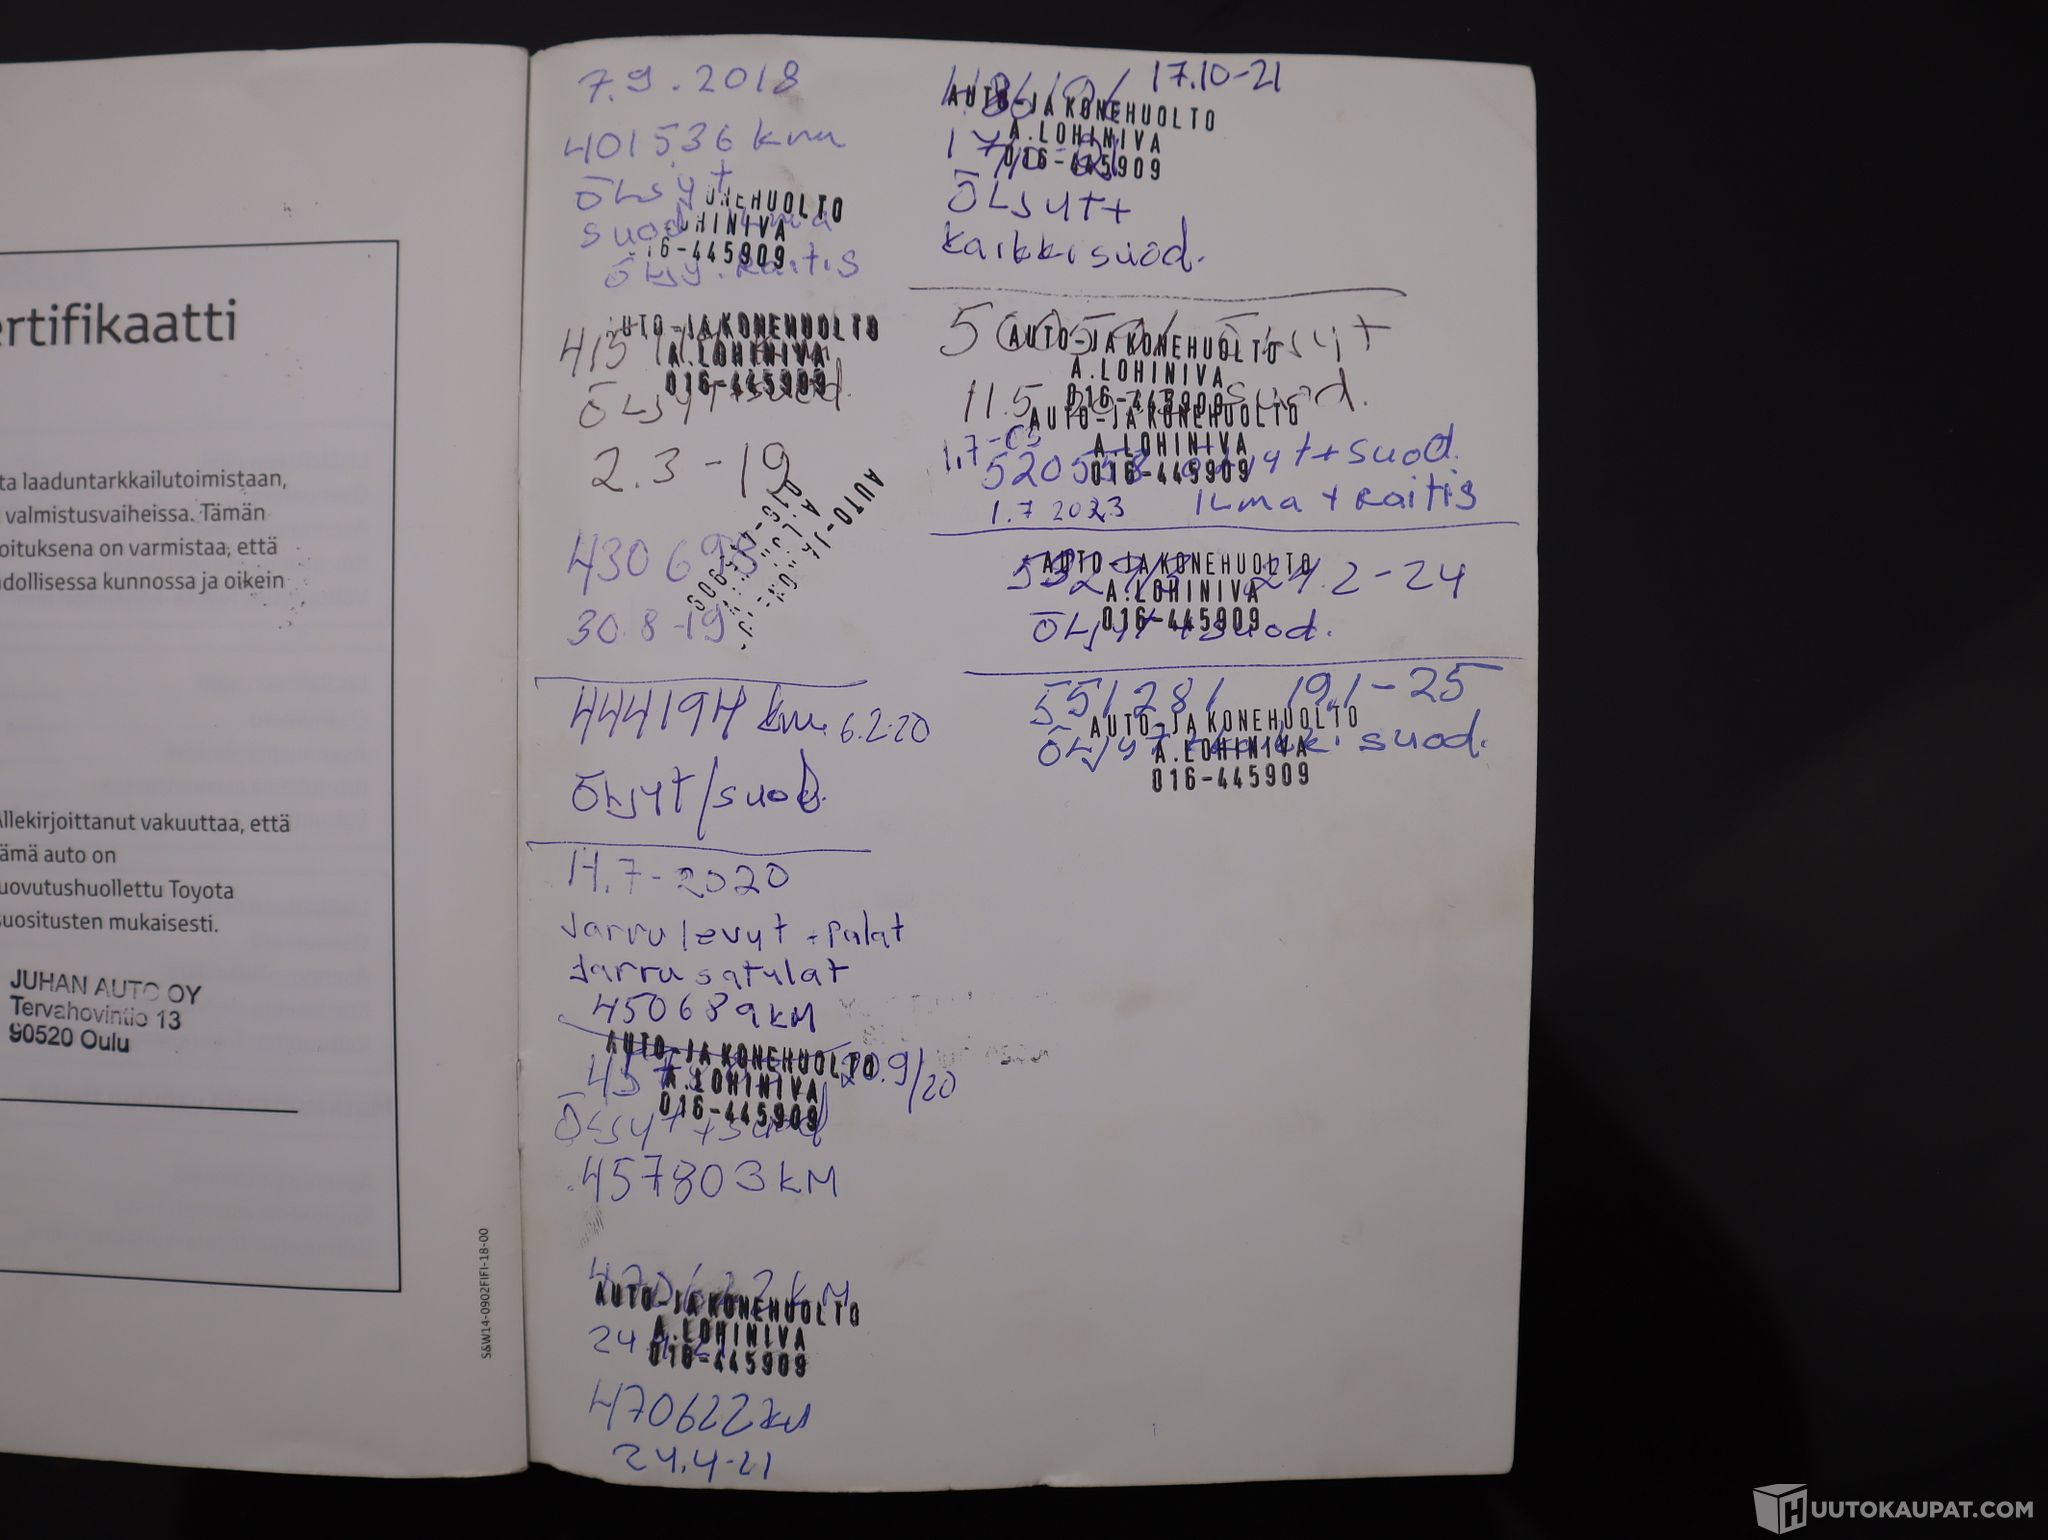 ertifikaatti
ta laaduntarkkailutoimistaan,
valmistusvaiheissa. Tämän
oituksena on varmistaa, että
dollisessa kunnossa ja oikein
Allekirjoittanut vakuuttaa, että
ämä auto on
uovutushuollettu Toyota
suositusten mukaisesti.
JUHAN AUTO OY
Tervahovintie 13
90520 Oulu
S&W14-0902FIFI-18-00
7.9.2018
401536 km
ÖLjyt
ONEHUOLTO
suod ilma
OHINIVA
16-445909
ÖLjy. Raitis
AUTO-JA KONEHUOLTO
415
A.LOHINIVA
016-445909
ÖLjyt+suod.
2.3-19
430698
30.8-19
444194 km 6.2-20
ÖLjyt/suod.
14.7-2020
Jarru levyt + palat
Jarru satulat
450689 KM
AUTO-JA KONEHUOLTO
20.9/20
A.LOHINIVA
016-445909
ÖLjyt+suod
457803 KM
470622 KM
AUTO-JA KONEHUOLTO
A.LOHINIVA
24.4-21
016-445909
470622 km
24.4-21
17.10-21
AUTO-JA KONEHUOLTO
A.LOHINIVA
016-445909
ÖLjyt+
kaikki suod.
AUTO-JA KONEHUOLTO
A.LOHINIVA
11.5 suod.
016-445909
AUTO-JA KONEHUOLTO
A.LOHINIVA
520558 öljyt+suod.
016-445909
1.7 2023 ILma + Raitis
AUTO-JA KONEHUOLTO
2-24
A.LOHINIVA
016-445909
ÖLjyt+suod.
551281 19.1-25
AUTO-JA KONEHUOLTO
ÖLjyt kaikki suod.
A.LOHINIVA
016-445909
HUUTOKAUPAT.COM